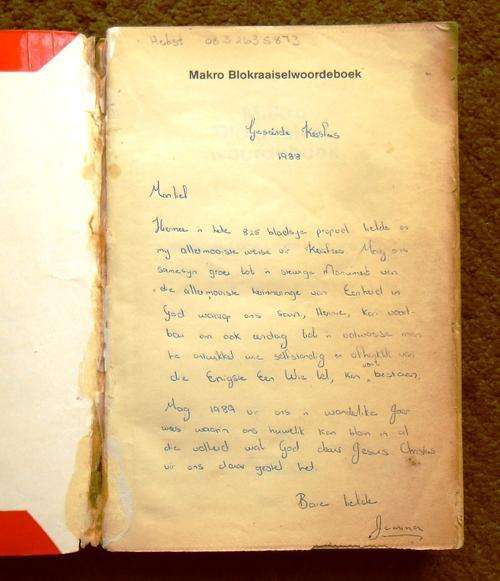 Herbst 083 2635873
Makro Blokraaiselwoordeboek
Geseënde Kersfees
1988
Hiermee 'n hele 825 bladsye propvol liefde op
my allermooiste weise vir Kersfees. Mag ons
samesyn groei tot 'n ewige Monument van
die allermooiste herinneringe van Eenheid in
God waarop ons seun, Hennie, kan voort-
bou om ook eendag tot 'n volwasse man
te ontwikkel wie selfstandig en afhanklik van
die Enigste Een Wie tel, kan voort bestaan.
Mag 1989 vir ons 'n wonderlike Jaar
wees waarin ons huwelik kan bloei in al
die volheid wat God deur Jesus Christus
vir ons daar gestel het.
Baie liefde